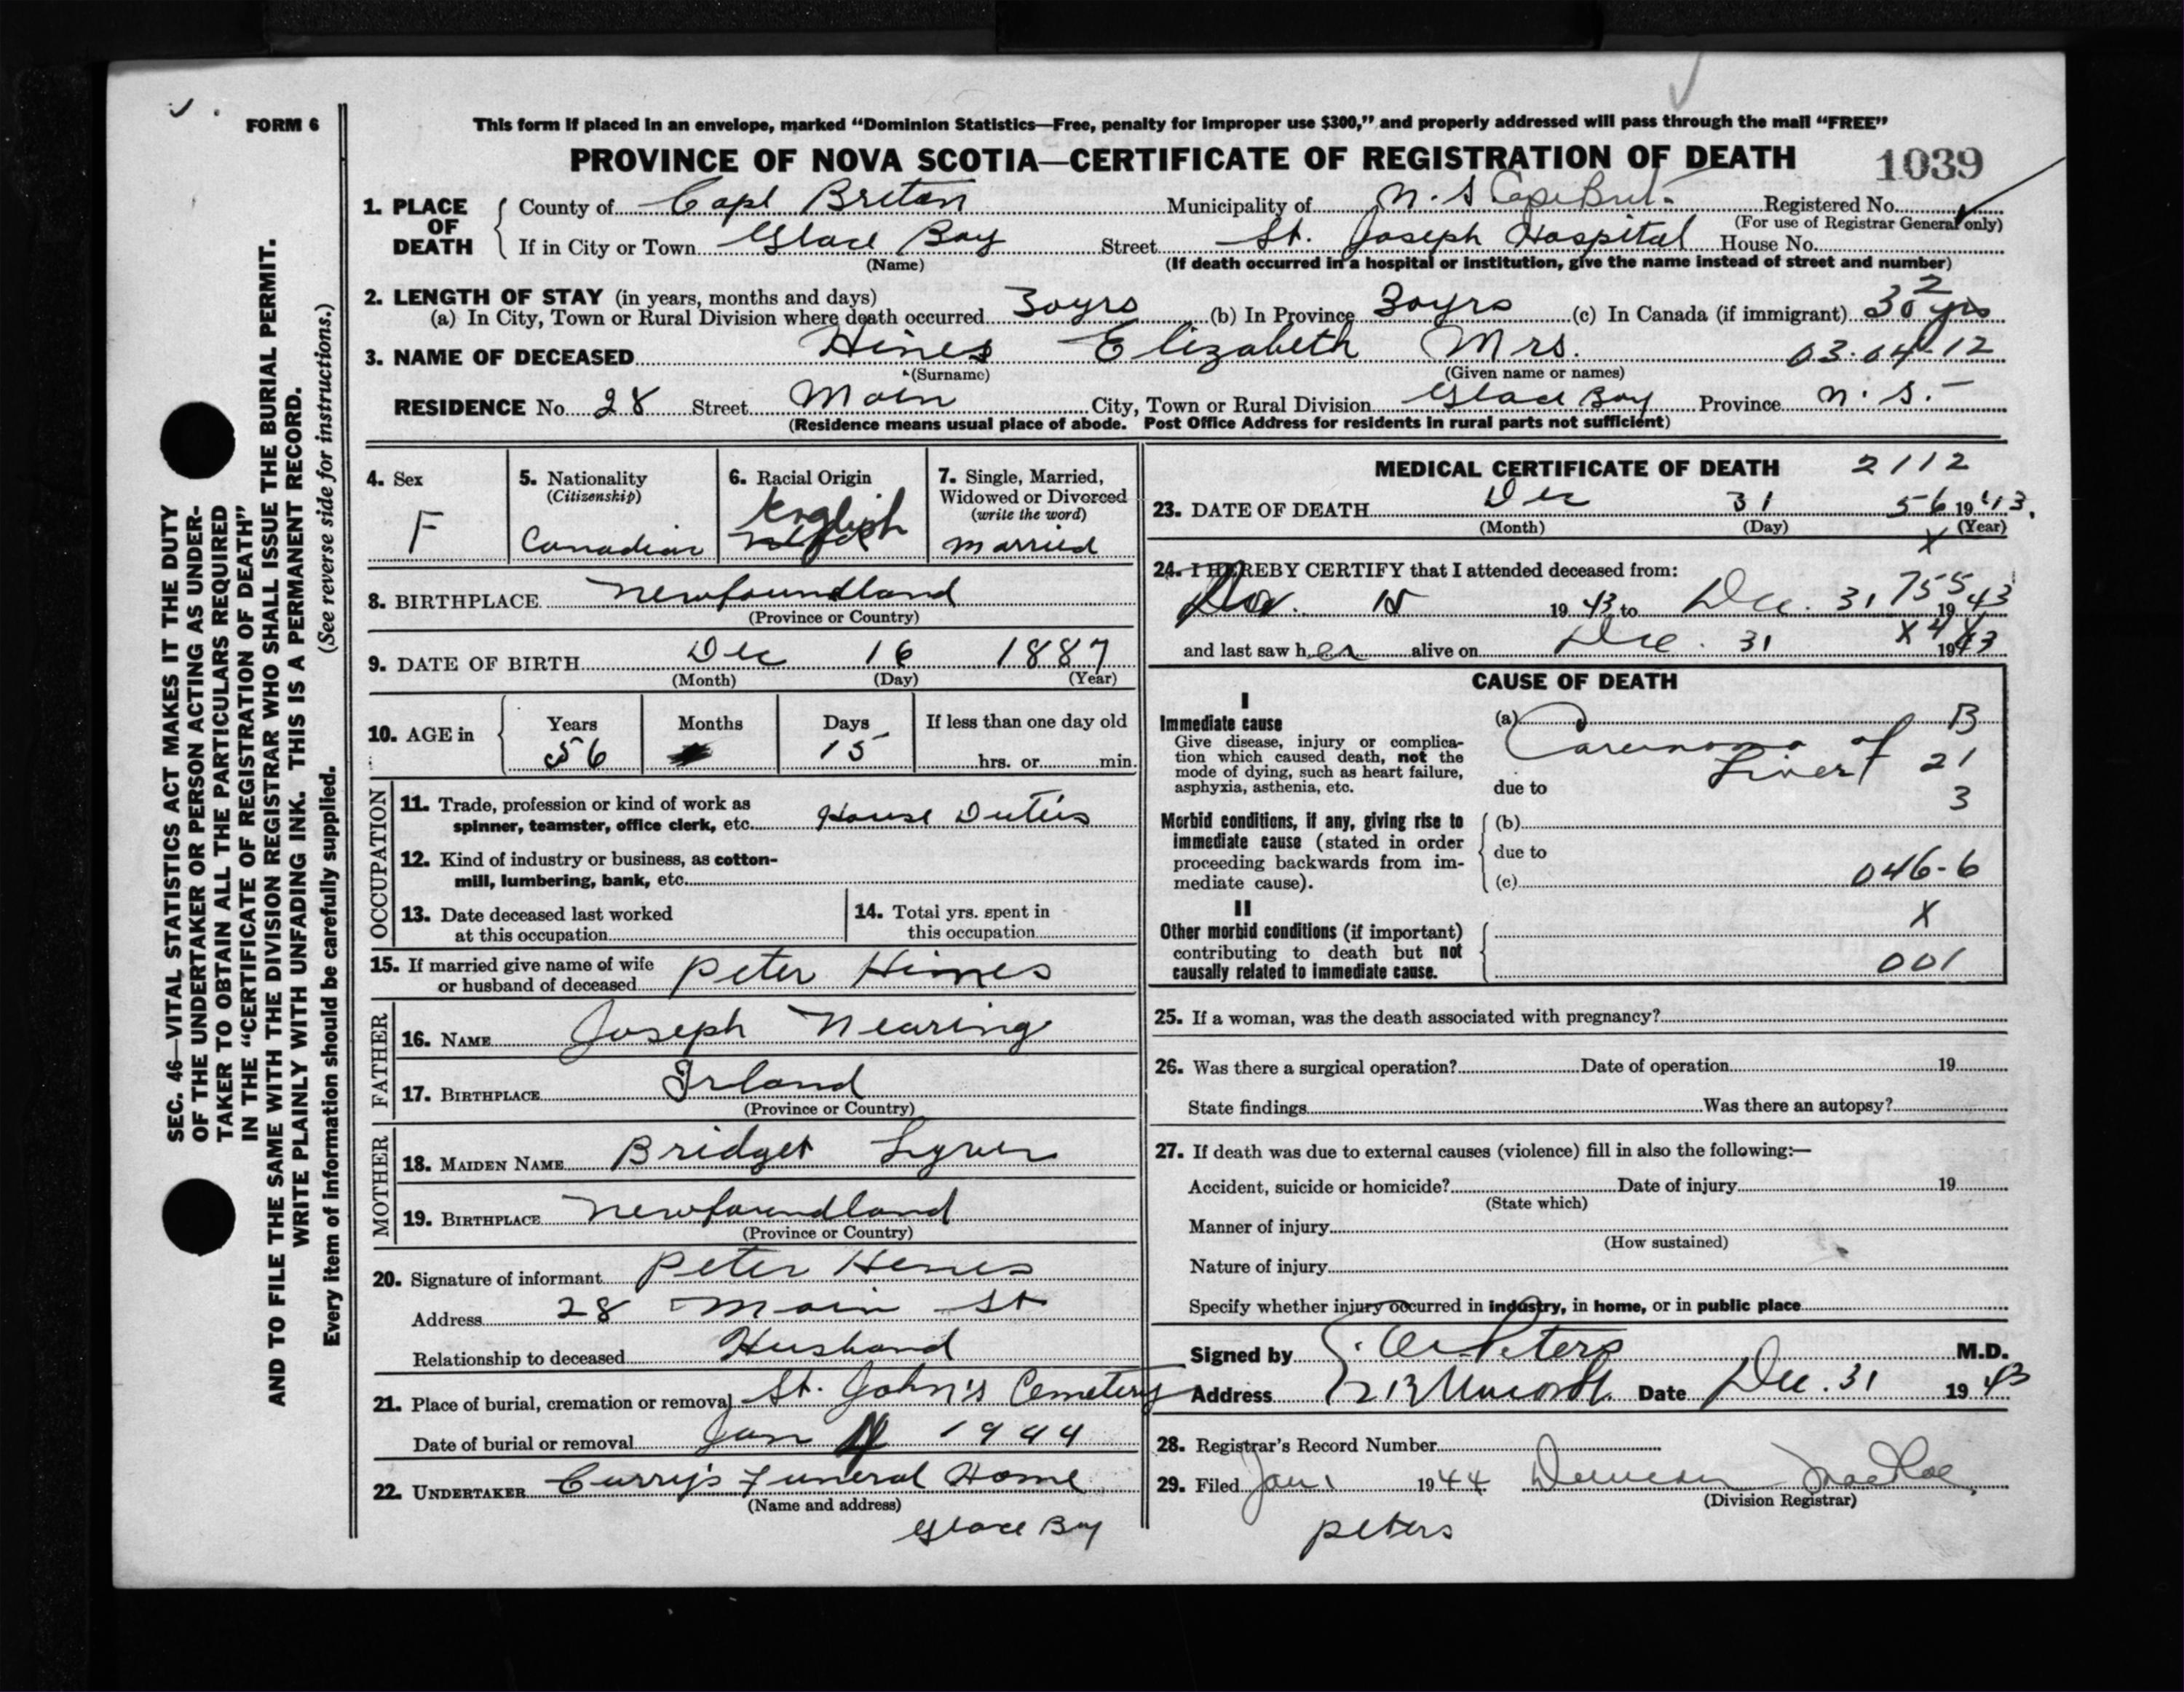 FORM 6
This form if placed in an envelope, marked “Dominion Statistics—Free, penalty for improper use $300,” and properly addressed will pass through the mail “FREE”
PROVINCE OF NOVA SCOTIA—CERTIFICATE OF REGISTRATION OF DEATH 1039
1. PLACE OF DEATH
County of Cape Breton Municipality of N. S Registered No.
(For use of Registrar General only)
If in City or Town Glace Bay Street St. Joseph Hospital House No.
(Name) (If death occurred in a hospital or institution, give the name instead of street and number)
2. LENGTH OF STAY (in years, months and days) 2
(a) In City, Town or Rural Division where death occurred 30yrs (b) In Province 30yrs (c) In Canada (if immigrant) 30 yrs
3. NAME OF DECEASED Hines Elizabeth Mrs. 03.04-12
(Surname) (Given name or names)
RESIDENCE No. 28 Street Main City, Town or Rural Division Glace Bay Province N. S.
(Residence means usual place of abode. Post Office Address for residents in rural parts not sufficient)
4. Sex
F
5. Nationality
(Citizenship)
Canadian
6. Racial Origin
English
7. Single, Married,
Widowed or Divorced
(write the word)
Married
8. BIRTHPLACE Newfoundland
(Province or Country)
9. DATE OF BIRTH Dec 16 1887
(Month) (Day) (Year)
10. AGE in
Years Months Days If less than one day old
56 15 hrs. or min.
OCCUPATION
11. Trade, profession or kind of work as
spinner, teamster, office clerk, etc. House Duties
12. Kind of industry or business, as cotton-
mill, lumbering, bank, etc.
13. Date deceased last worked
at this occupation
14. Total yrs. spent in
this occupation
15. If married give name of wife
or husband of deceased Peter Hines
FATHER
16. NAME Joseph Nearing
17. BIRTHPLACE Irland
(Province or Country)
MOTHER
18. MAIDEN NAME Bridget
19. BIRTHPLACE Newfoundland
(Province or Country)
20. Signature of informant Peter Hines
Address 28 Main St
Relationship to deceased Husband
21. Place of burial, cremation or removal St. John's Cemetery
Date of burial or removal Jan 1944
22. UNDERTAKER Curry's Funeral Home
(Name and address)
Glace Bay
MEDICAL CERTIFICATE OF DEATH 2112
23. DATE OF DEATH Dec 31 56 1943.
(Month) (Day) (Year)
X
24. I HEREBY CERTIFY that I attended deceased from:
15 1943 to Dec. 31 755 1943
and last saw her alive on Dec. 31 X4X 1943
CAUSE OF DEATH
I
Immediate cause
Give disease, injury or complica-
tion which caused death, not the
mode of dying, such as heart failure,
asphyxia, asthenia, etc.
(a) Carcinoma of B
Liver 21
due to
3
Morbid conditions, if any, giving rise to
immediate cause (stated in order
proceeding backwards from im-
mediate cause).
(b)
due to
(c) 046-6
II
Other morbid conditions (if important)
contributing to death but not
causally related to immediate cause.
X
001
25. If a woman, was the death associated with pregnancy?
26. Was there a surgical operation? Date of operation 19
State findings Was there an autopsy?
27. If death was due to external causes (violence) fill in also the following:—
Accident, suicide or homicide? Date of injury 19
(State which)
Manner of injury
(How sustained)
Nature of injury
Specify whether injury occurred in industry, in home, or in public place
Signed by Peters M.D.
Address Date Dec. 31 1943
28. Registrar's Record Number
29. Filed Jan 1 1944
(Division Registrar)
Peters
SEC. 46—VITAL STATISTICS ACT MAKES IT THE DUTY
OF THE UNDERTAKER OR PERSON ACTING AS UNDER-
TAKER TO OBTAIN ALL THE PARTICULARS REQUIRED
IN THE “CERTIFICATE OF REGISTRATION OF DEATH”
AND TO FILE THE SAME WITH THE DIVISION REGISTRAR WHO SHALL ISSUE THE BURIAL PERMIT.
WRITE PLAINLY WITH UNFADING INK. THIS IS A PERMANENT RECORD.
Every item of information should be carefully supplied. (See reverse side for instructions.)